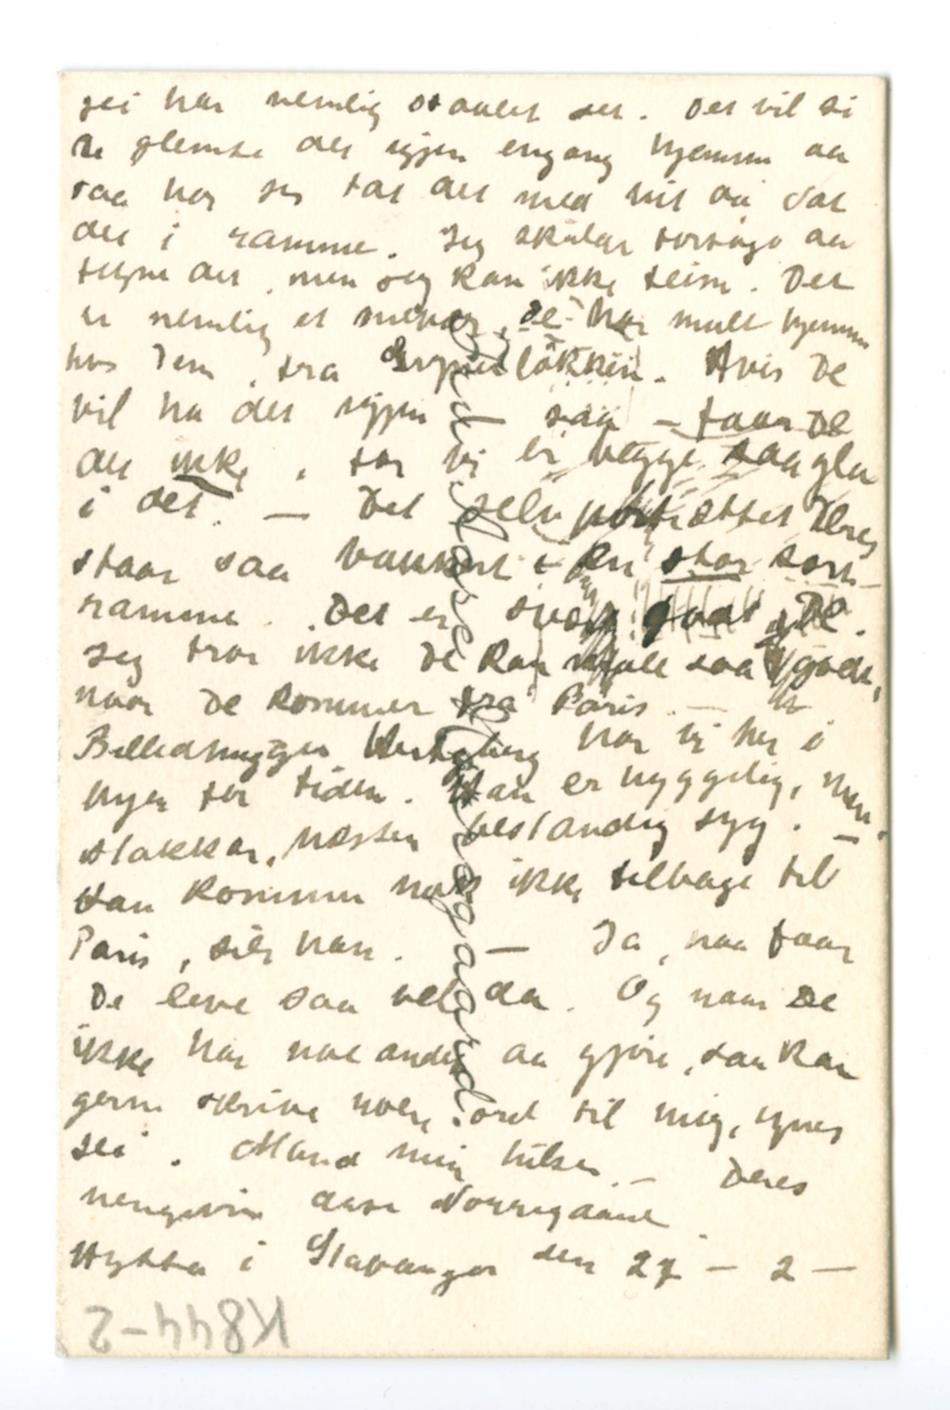 jei har nemlig staalet det. Det vil si
De glemte det igjen engang hjemme aa
saa har jeg tat det med hit aa sat
det i ramme. Jeg skulde forsøge aa
tegne det, men jeg kan ikke. Det
er nemlig et De har malt hjemme
hos Dem, fra løkken. Hvis De
vil ha det igjen – saa – faar De
det ikke, for vi er begge saa gla
i det. — Det selvportrættet Deres
staar saa vakkert i en stor sort
ramme. Det er svært godt, De.
Jeg tror ikke De kan male saa godt,
naar De kommer fra Paris. —
Billedhugger har vi her i
byen for tiden. Han er hyggelig, men,
stakkar, næsten bestandig syg. —
Han kommer nok ikke tilbage til
Paris, sier han. — Ja, naa faar
De leve saa vel da. Og naar De
ikke har noe andet aa gjøre, saa kan
gerne skrive noen ord til mig, synes
jei. Maud min hilsen. — Deres
hengivne Aase Nørregaard
Hytta i Stavanger den 27 – 2 –
Fru Aase Nørregaard.
K844-2